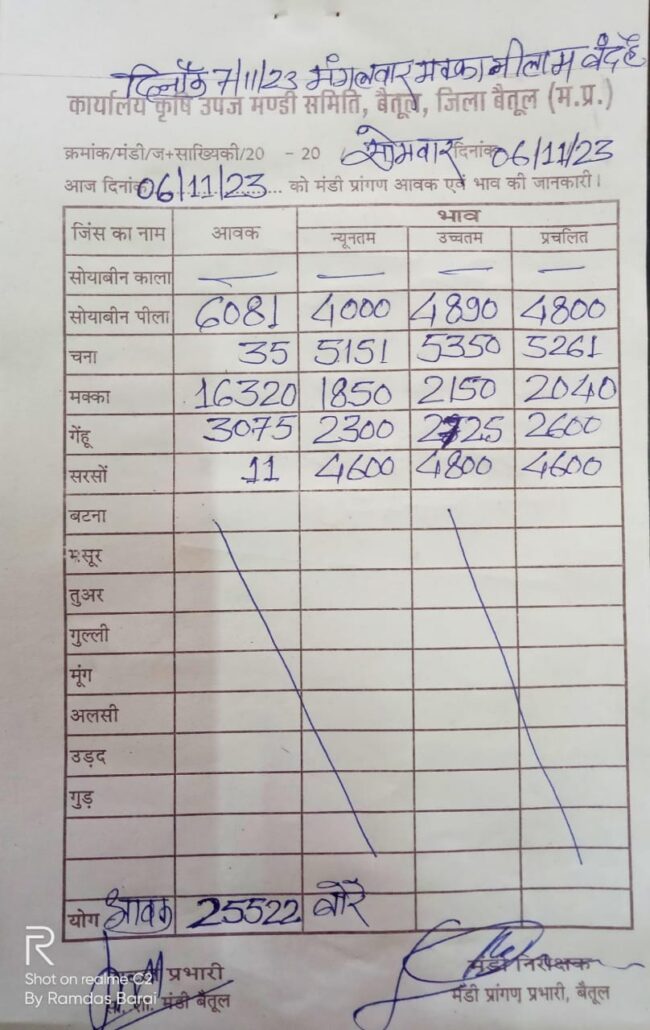 दिनाँक 7/11/23 मंगलवार मक्का नीलाम बंद है
कार्यालय कृषि उपज मण्डी समिति, बैतूल, जिला बैतूल (म.प्र.)
क्रमांक/मंडी/ज+साख्यिकी/20 - 20 सोमवार दिनांक 06/11/23
आज दिनांक 06/11/23 को मंडी प्रांगण आवक एवं भाव की जानकारी।
जिंस का नाम आवक भाव
न्यूनतम उच्चतम प्रचलित
सोयाबीन काला — — — —
सोयाबीन पीला 6081 4000 4890 4800
चना 35 5151 5350 5261
मक्का 16320 1850 2150 2040
गेंहू 3075 2300 2725 2600
सरसों 11 4600 4800 4600
बटना
मसूर
तुअर
गुल्ली
मूंग
अलसी
उड़द
गुड़
योग आवक 25522 बोरे
प्रभारी मंडी निरीक्षक
मंडी बैतूल मंडी प्रांगण प्रभारी, बैतूल
R
Shot on realme C2
By Ramdas Barai